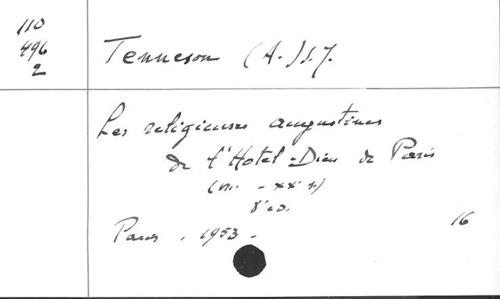 110
496
2
Tenneson (A.) s.j.
Les religieuses augustines
de l'Hotel-Dieu de Paris
(VII. - XX° s.)
8° éd.
16
Paris. 1953.